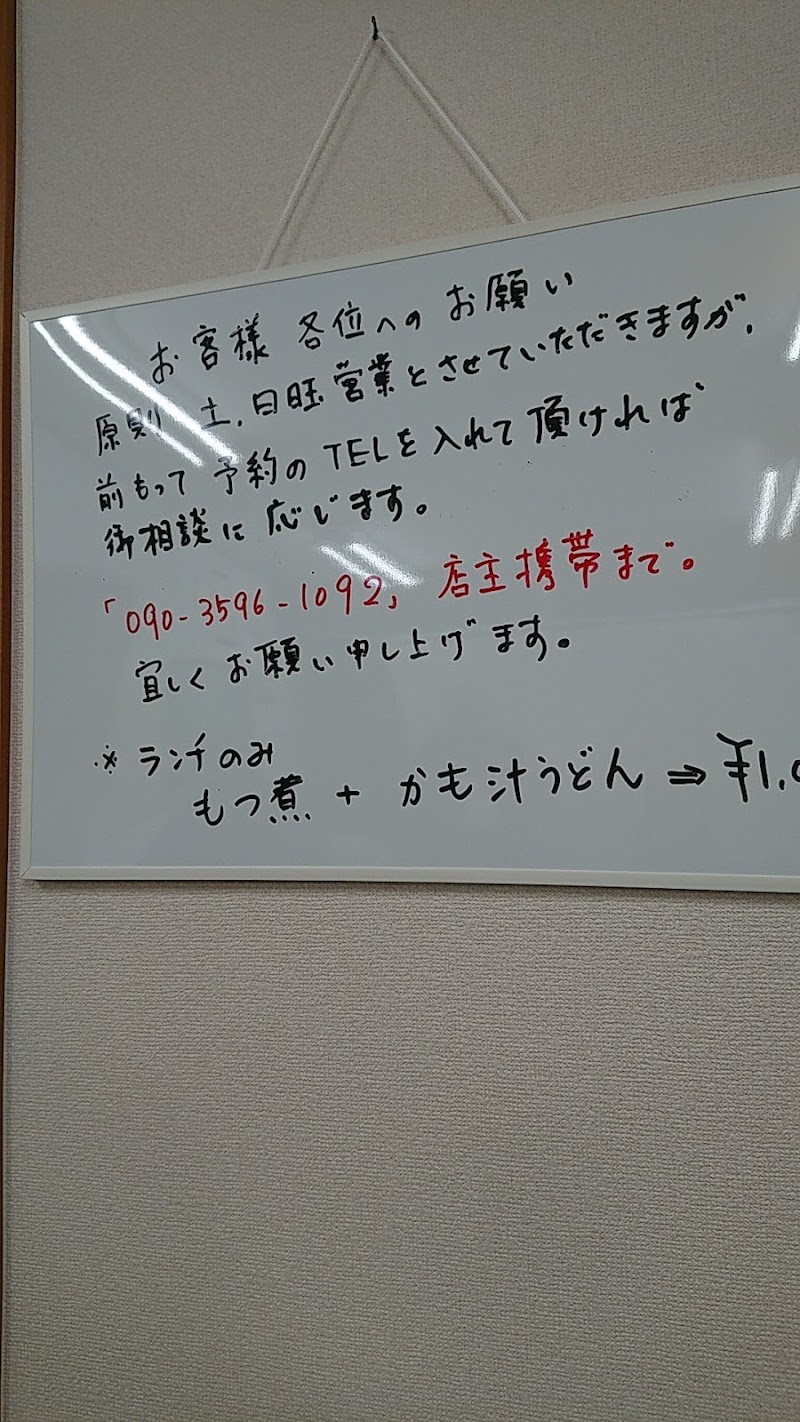 お客様 各位へのお願い
原則 土、日旺営業とさせていただきますが、
前もって予約のTELを入れて頂ければ
御相談に応じます。
「090-3596-1092」店主携帯まで。
宜しくお願い申し上げます。
※ランチのみ
もつ煮 + かも汁うどん ⇒ ¥1,0